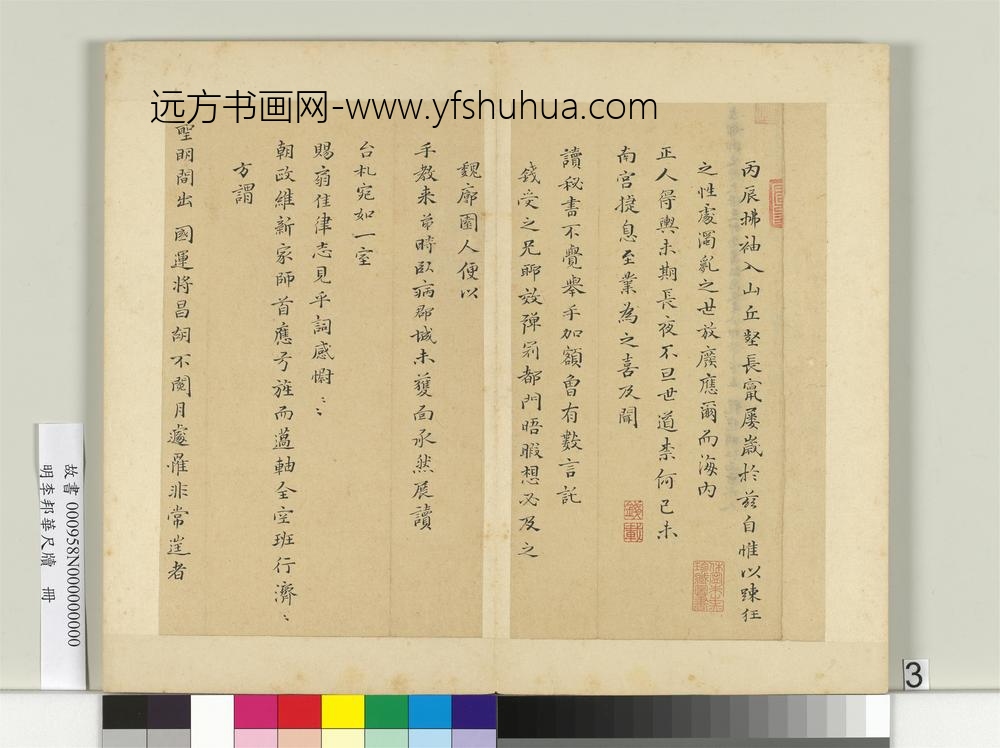 远方书画网-www.yfshuhua.com
丙辰拂袖入山丘壑長甯屡歲於茲自惟以踈狂
之性處濁亂之世放廢應爾而海內
正人得輿未期長夜不旦世道柰何己未
南宮捷息至業為之喜及閱
讀秘書不覺舉手加額曾有數言託
錢受之兄郵效殫冠都門晤暇想必及之
魏廓園人便以
手教来當時臥病郡城未蒦面承然展讀
台札宛如一室
賜翁佳律志見乎詞感慚〻
朝政維新家師首應弓旌而薖軸全空班行濟〻
方謂
聖明間出 國運將昌胡不閱月遽罹非常豈者
故書 000958N000000000
明李邦華尺牘 冊
3